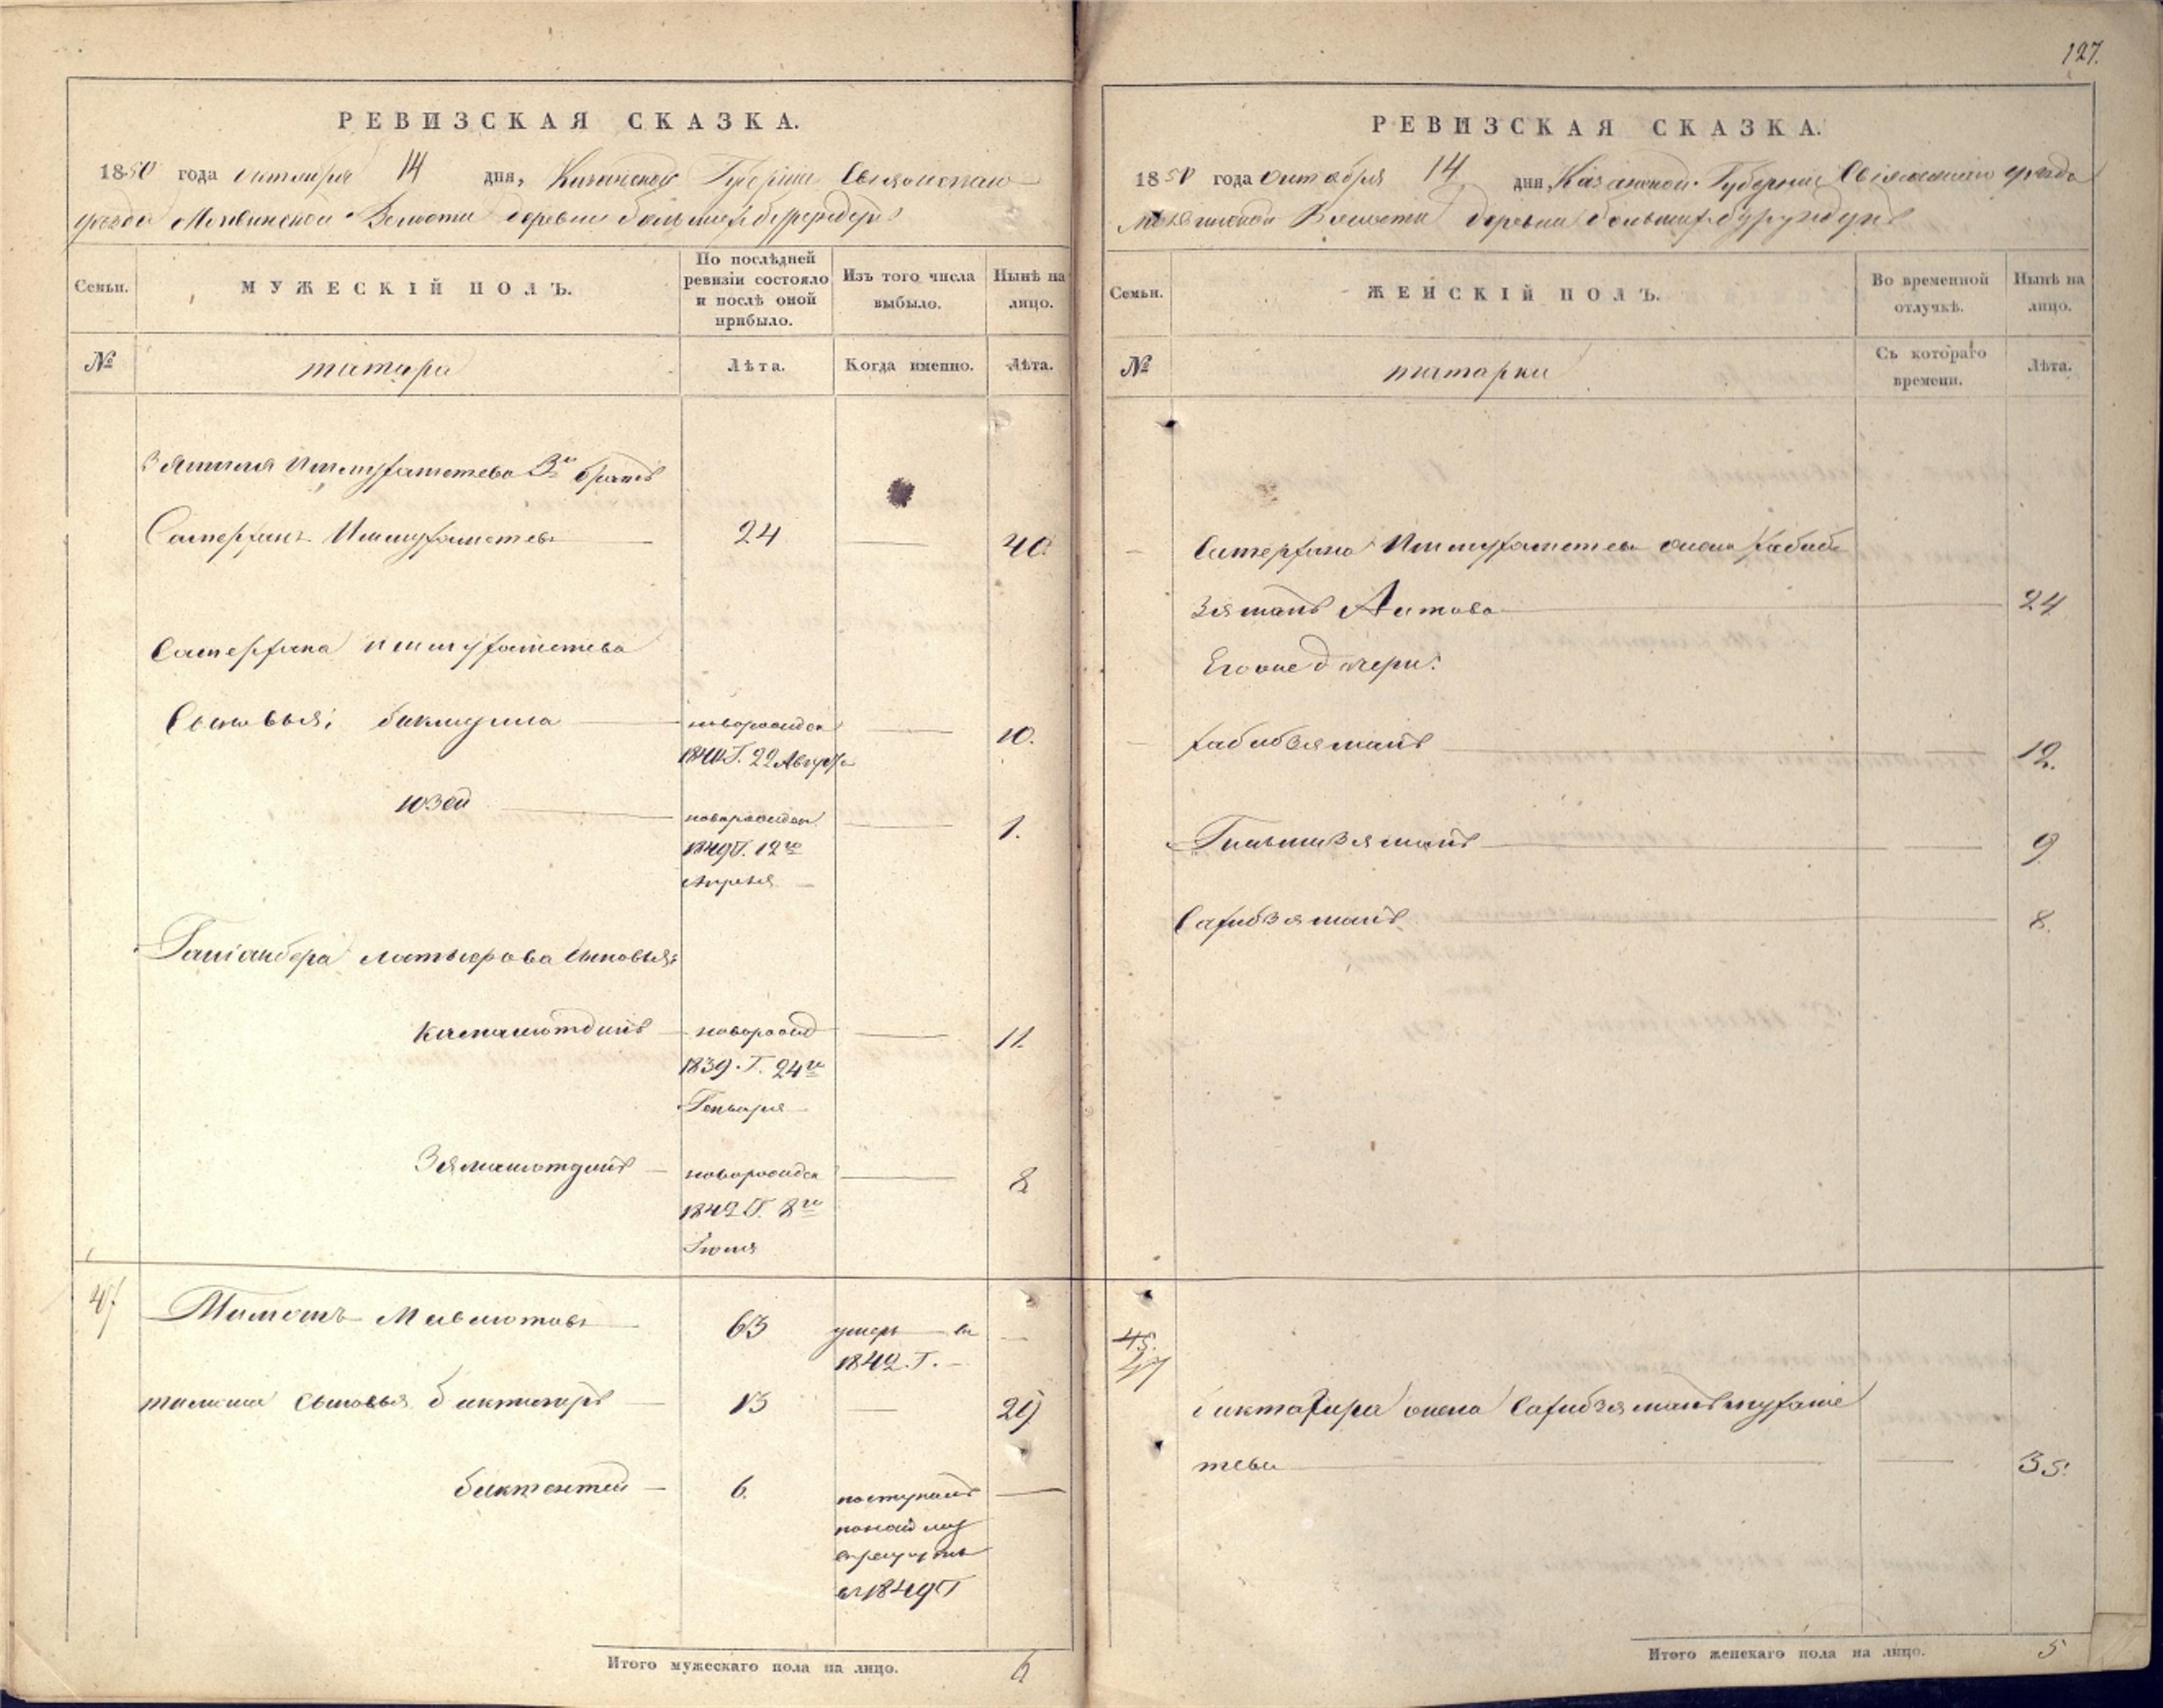 127.
РЕВИЗСКАЯ СКАЗКА.
1850 года октября 14 дня, Казанской Губернии Свіяжскаго
уезда Молвинской Волости деревни большихъ бурундуковъ
Семьи.
МУЖЕСКІЙ ПОЛЪ.
По послѣдней ревизіи состояло и послѣ оной прибыло.
Изъ того числа выбыло.
Нынѣ на лицо.
№
татара
Лѣта.
Когда именно.
Лѣта.
Ишмухаметева 3й братъ
Сатерханъ Ишмухаметевъ 24 — 40.
Сатерхана Ишмухаметева
Сыновья: бикмулла новорожден — 10.
1840 Г. 22 Августа
юзей новорожден — 1.
1849 Г. 12го
Апреля
латыфова сыновья:
камалютдинъ новорожд — 11
1839. Г. 24го
Генваря
Зямалютдинъ новорожден — 8
1842 Г. 8го
Іюля
47
Мавлютовъ 63 умеръ въ —
1842. Г.
сыновья биктагиръ 13 — 29
биктентей 6. поступилъ —
по найму
в рекруты
въ 1849 Г
Итого мужескаго пола на лицо. 6
РЕВИЗСКАЯ СКАЗКА.
1850 года октября 14 дня, Казанской Губернии Свіяжскаго уезда
Молвинской Волости деревни большихъ бурундуковъ
Семьи.
ЖЕНСКІЙ ПОЛЪ.
Во временной отлучкѣ.
Нынѣ на лицо.
№
татарки
Съ котораго времени.
Лѣта.
Сатерхана Ишмухаметева жена Хабиб
Зямалъ Аитова 24
Его же дочери:
хабибзямалъ 12.
Гильмизямалъ — 9
Сагибзямалъ 8.
45.
47
биктагира жена Сагибзямалъ мухаме
тева — 35.
Итого женскаго пола на лицо. 5